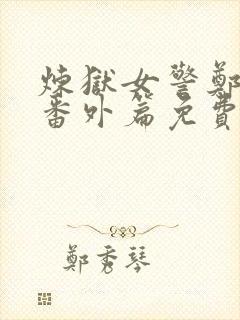 煉獄女警鄭
番外篇免費
鄭秀琴